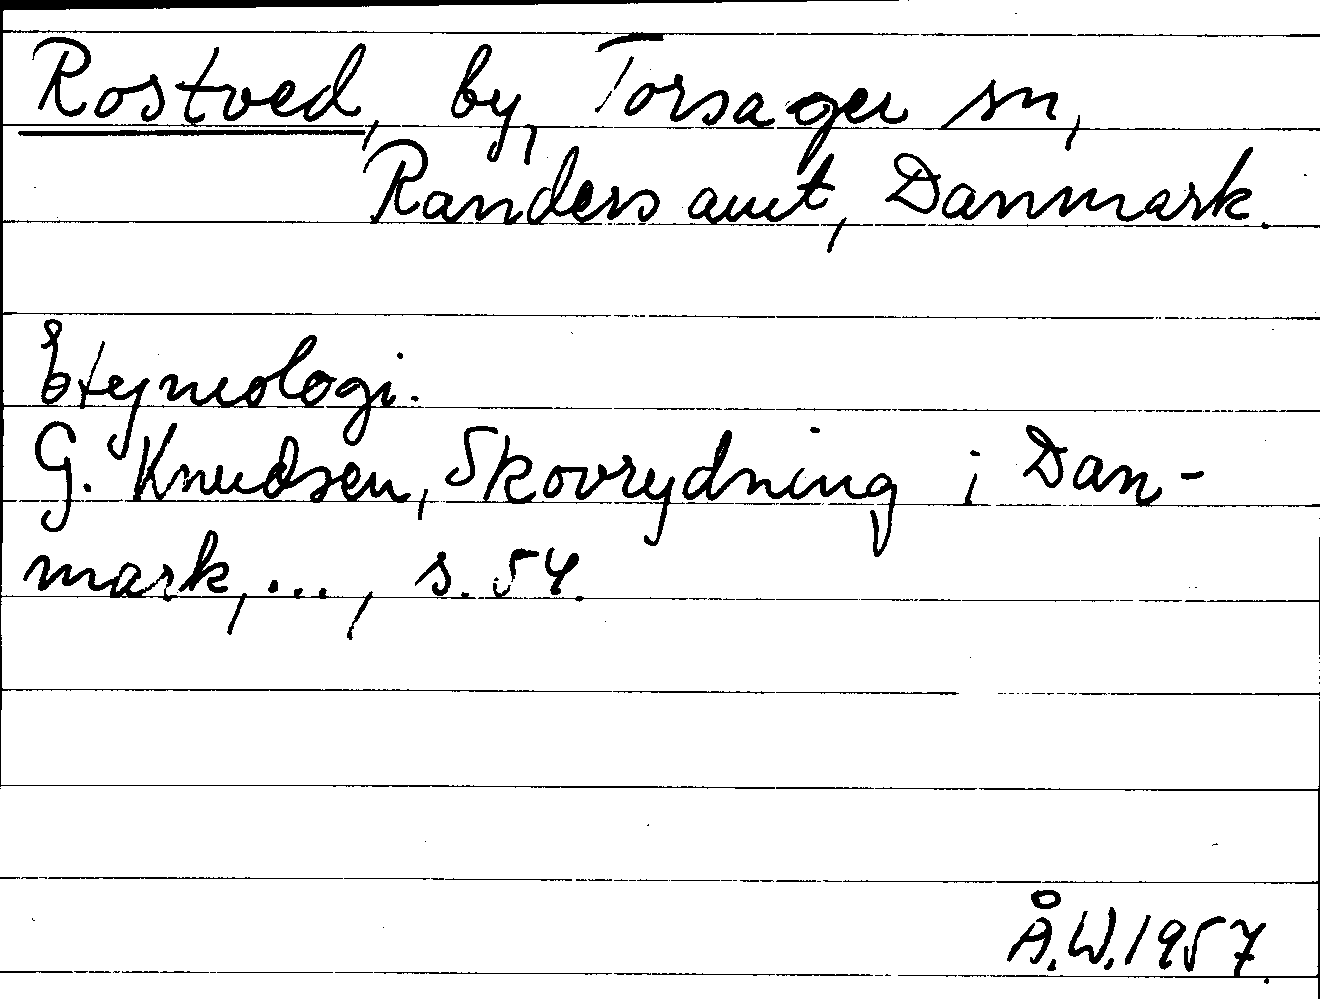 Rostved, by, Torsager sn,
Randers amt, Danmark.
Etymologi.
G. Knudsen, Skovrydning i Dan-
mark, ..., s. 54.
Å.W. 1957.